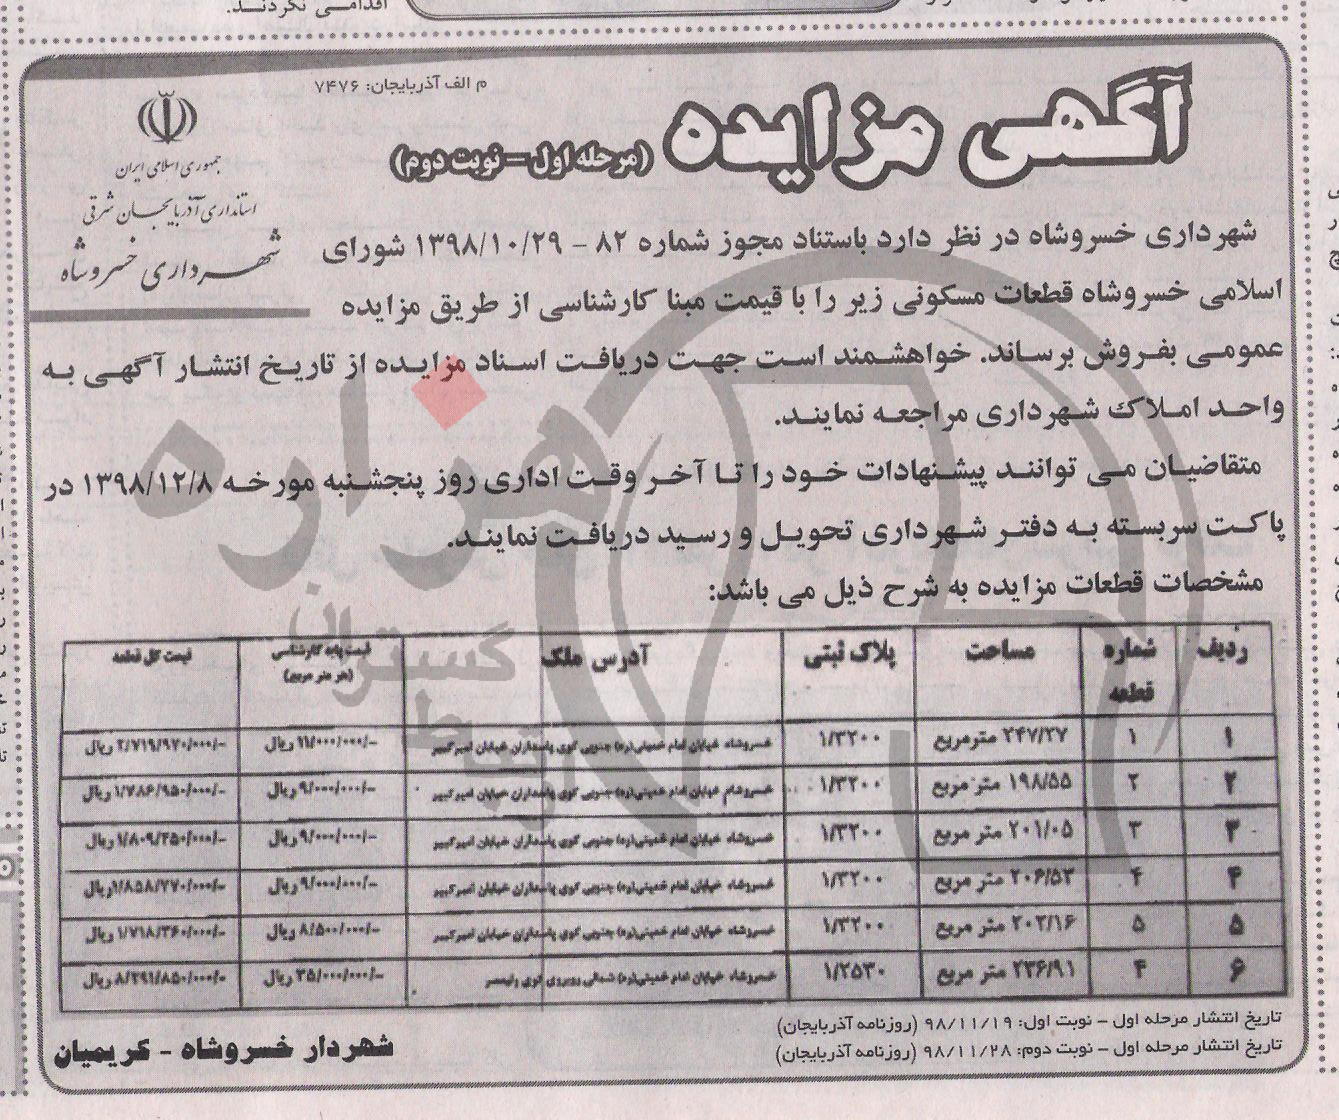 اقدامی نکردند.
م الف آذربایجان: ۷۴۷۶
آگهی مزایده (مرحله اول – نوبت دوم)
جمهوری اسلامی ایران
استانداری آذربایجان شرقی
شهرداری خسروشاه
شهرداری خسروشاه در نظر دارد باستناد مجوز شماره ۸۲ – ۱۳۹۸/۱۰/۲۹ شورای
اسلامی خسروشاه قطعات مسکونی زیر را با قیمت مبنا کارشناسی از طریق مزایده
عمومی بفروش برساند. خواهشمند است جهت دریافت اسناد مزایده از تاریخ انتشار آگهی به
واحد املاک شهرداری مراجعه نمایند.
متقاضیان می توانند پیشنهادات خود را تا آخر وقت اداری روز پنجشنبه مورخه ۱۳۹۸/۱۲/۸ در
پاکت سربسته به دفتر شهرداری تحویل و رسید دریافت نمایند.
مشخصات قطعات مزایده به شرح ذیل می باشد:
ردیف شماره قطعه مساحت پلاک ثبتی آدرس ملک قیمت پایه کارشناسی (هر متر مربع) قیمت کل قطعه
۱ ۱ ۲۴۷/۲۷ مترمربع ۱/۳۲۰۰ خسروشاه خیابان امام خمینی(ره) جنوبی کوی پاسداران خیابان امیرکبیر ۱۱/۰۰۰/۰۰۰/- ریال ۲/۷۱۹/۹۷۰/۰۰۰/- ریال
۲ ۲ ۱۹۸/۵۵ متر مربع ۱/۳۲۰۰ خسروشاه خیابان امام خمینی(ره) جنوبی کوی پاسداران خیابان امیرکبیر ۹/۰۰۰/۰۰۰/- ریال ۱/۷۸۶/۹۵۰/۰۰۰/- ریال
۳ ۳ ۲۰۱/۰۵ متر مربع ۱/۳۲۰۰ خسروشاه خیابان امام خمینی(ره) جنوبی کوی پاسداران خیابان امیرکبیر ۹/۰۰۰/۰۰۰/- ریال ۱/۸۰۹/۴۵۰/۰۰۰/- ریال
۴ ۴ ۲۰۶/۵۳ متر مربع ۱/۳۲۰۰ خسروشاه خیابان امام خمینی(ره) جنوبی کوی پاسداران خیابان امیرکبیر ۹/۰۰۰/۰۰۰/- ریال ۱/۸۵۸/۷۷۰/۰۰۰/- ریال
۵ ۵ ۲۰۲/۱۶ متر مربع ۱/۳۲۰۰ خسروشاه خیابان امام خمینی(ره) جنوبی کوی پاسداران خیابان امیرکبیر ۸/۵۰۰/۰۰۰/- ریال ۱/۷۱۸/۳۶۰/۰۰۰/- ریال
۶ ۴ ۲۳۶/۹۱ متر مربع ۱/۲۵۳۰ خسروشاه خیابان امام خمینی(ره) شمالی روبروی کوی ولیعصر ۳۵/۰۰۰/۰۰۰/- ریال ۸/۲۹۱/۸۵۰/۰۰۰/- ریال
تاریخ انتشار مرحله اول – نوبت اول: ۹۸/۱۱/۱۹ (روزنامه آذربایجان)
تاریخ انتشار مرحله اول – نوبت دوم: ۹۸/۱۱/۲۸ (روزنامه آذربایجان)
شهردار خسروشاه – کریمیان
هزاره
گستران
ارتباط